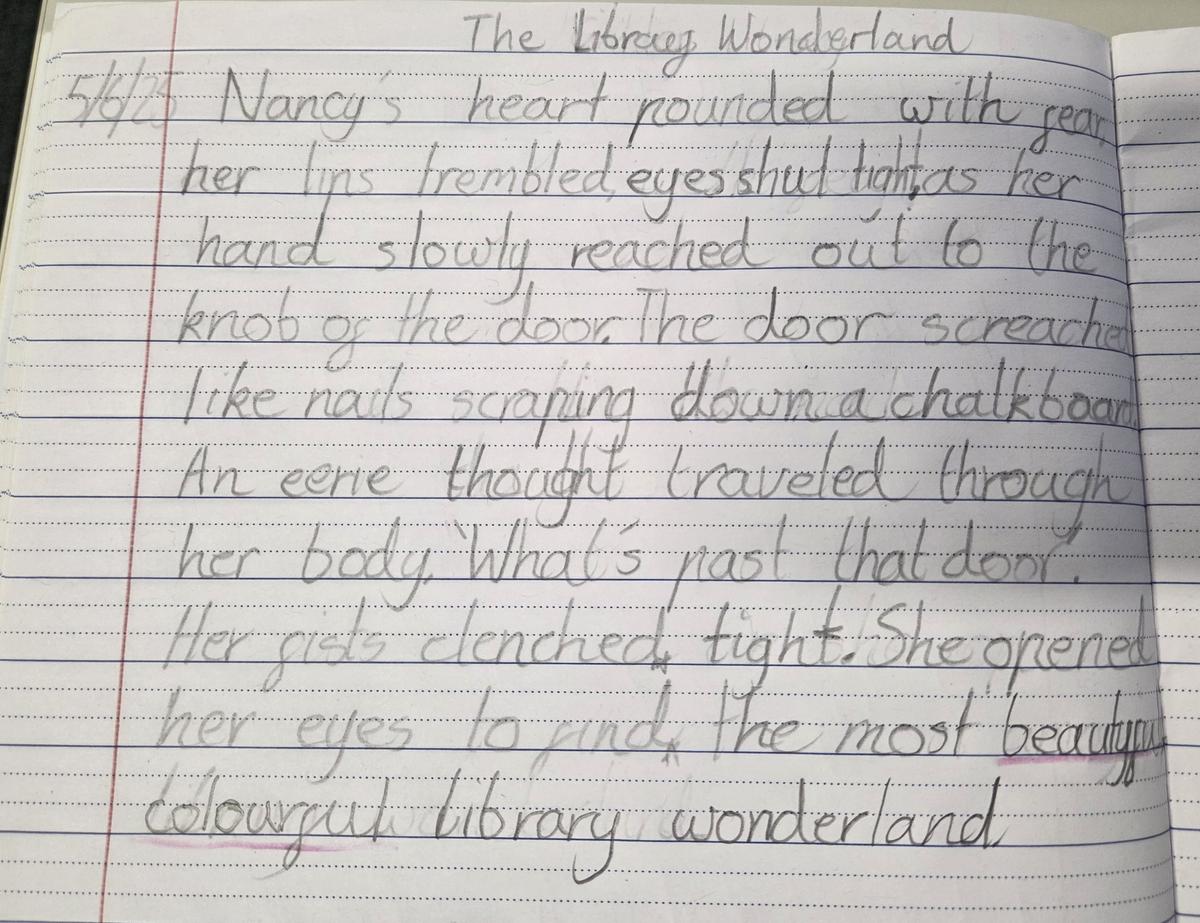 The Library Wonderland
5/6/25 Nancy's heart pounded with fear,
her lips trembled, eyes shut tight, as her
hand slowly reached out to the
knob of the door. The door screached
like nails scraping down a chalkboard
An eerie thought traveled through
her body. 'What's past that door'.
Her fists clenched, tight. She opened
her eyes to find, the most beautyful
colourful library wonderland.